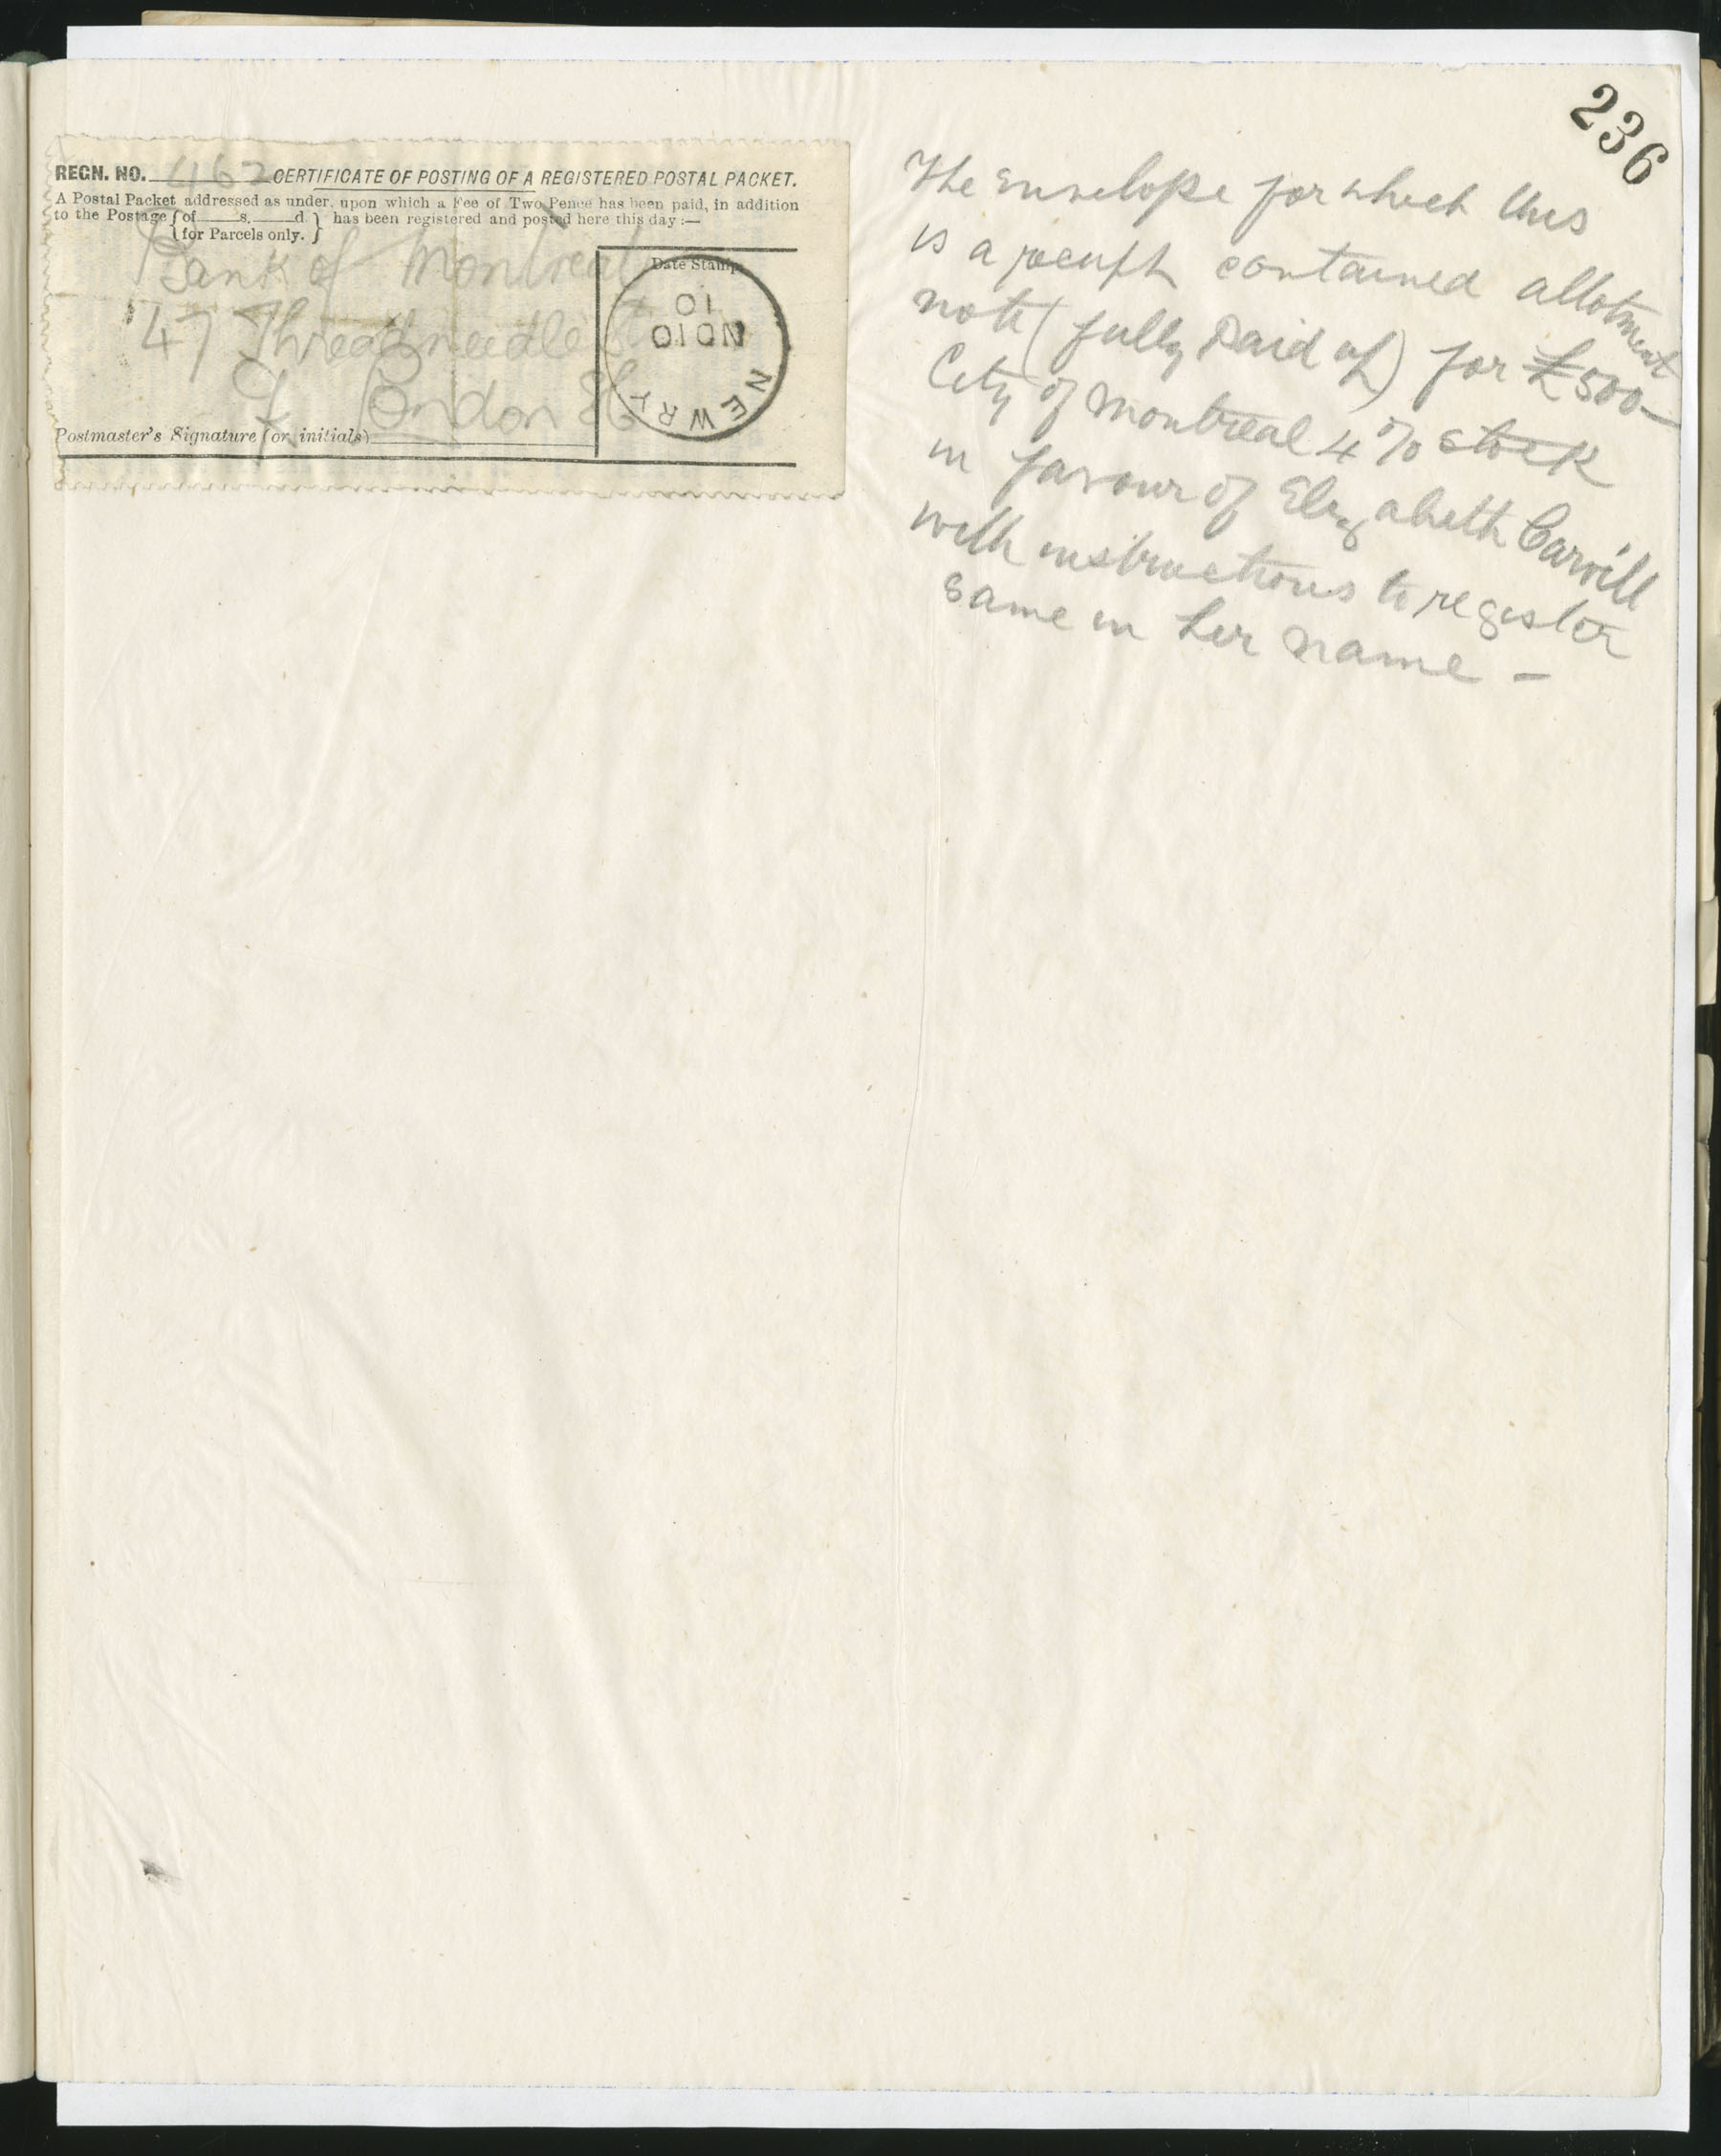 236
REGN. NO. 4162 CERTIFICATE OF POSTING OF A REGISTERED POSTAL PACKET.
A Postal Packet addressed as under, upon which a Fee of Two Pence has been paid, in addition
to the Postage { of ____ s. ____ d. } has been registered and posted here this day :—
{ for Parcels only. }
Bank of Montreal
47 Threadneedle St
London EC
Date Stamp
NEWRY
10
NO 10
Postmaster's Signature (or initials)
The envelope for which this
is a receipt contained allotment
note (fully paid up) for £500
City of Montreal 4% stock
in favour of Elizabeth Carvill
with instructions to register
same in her name —